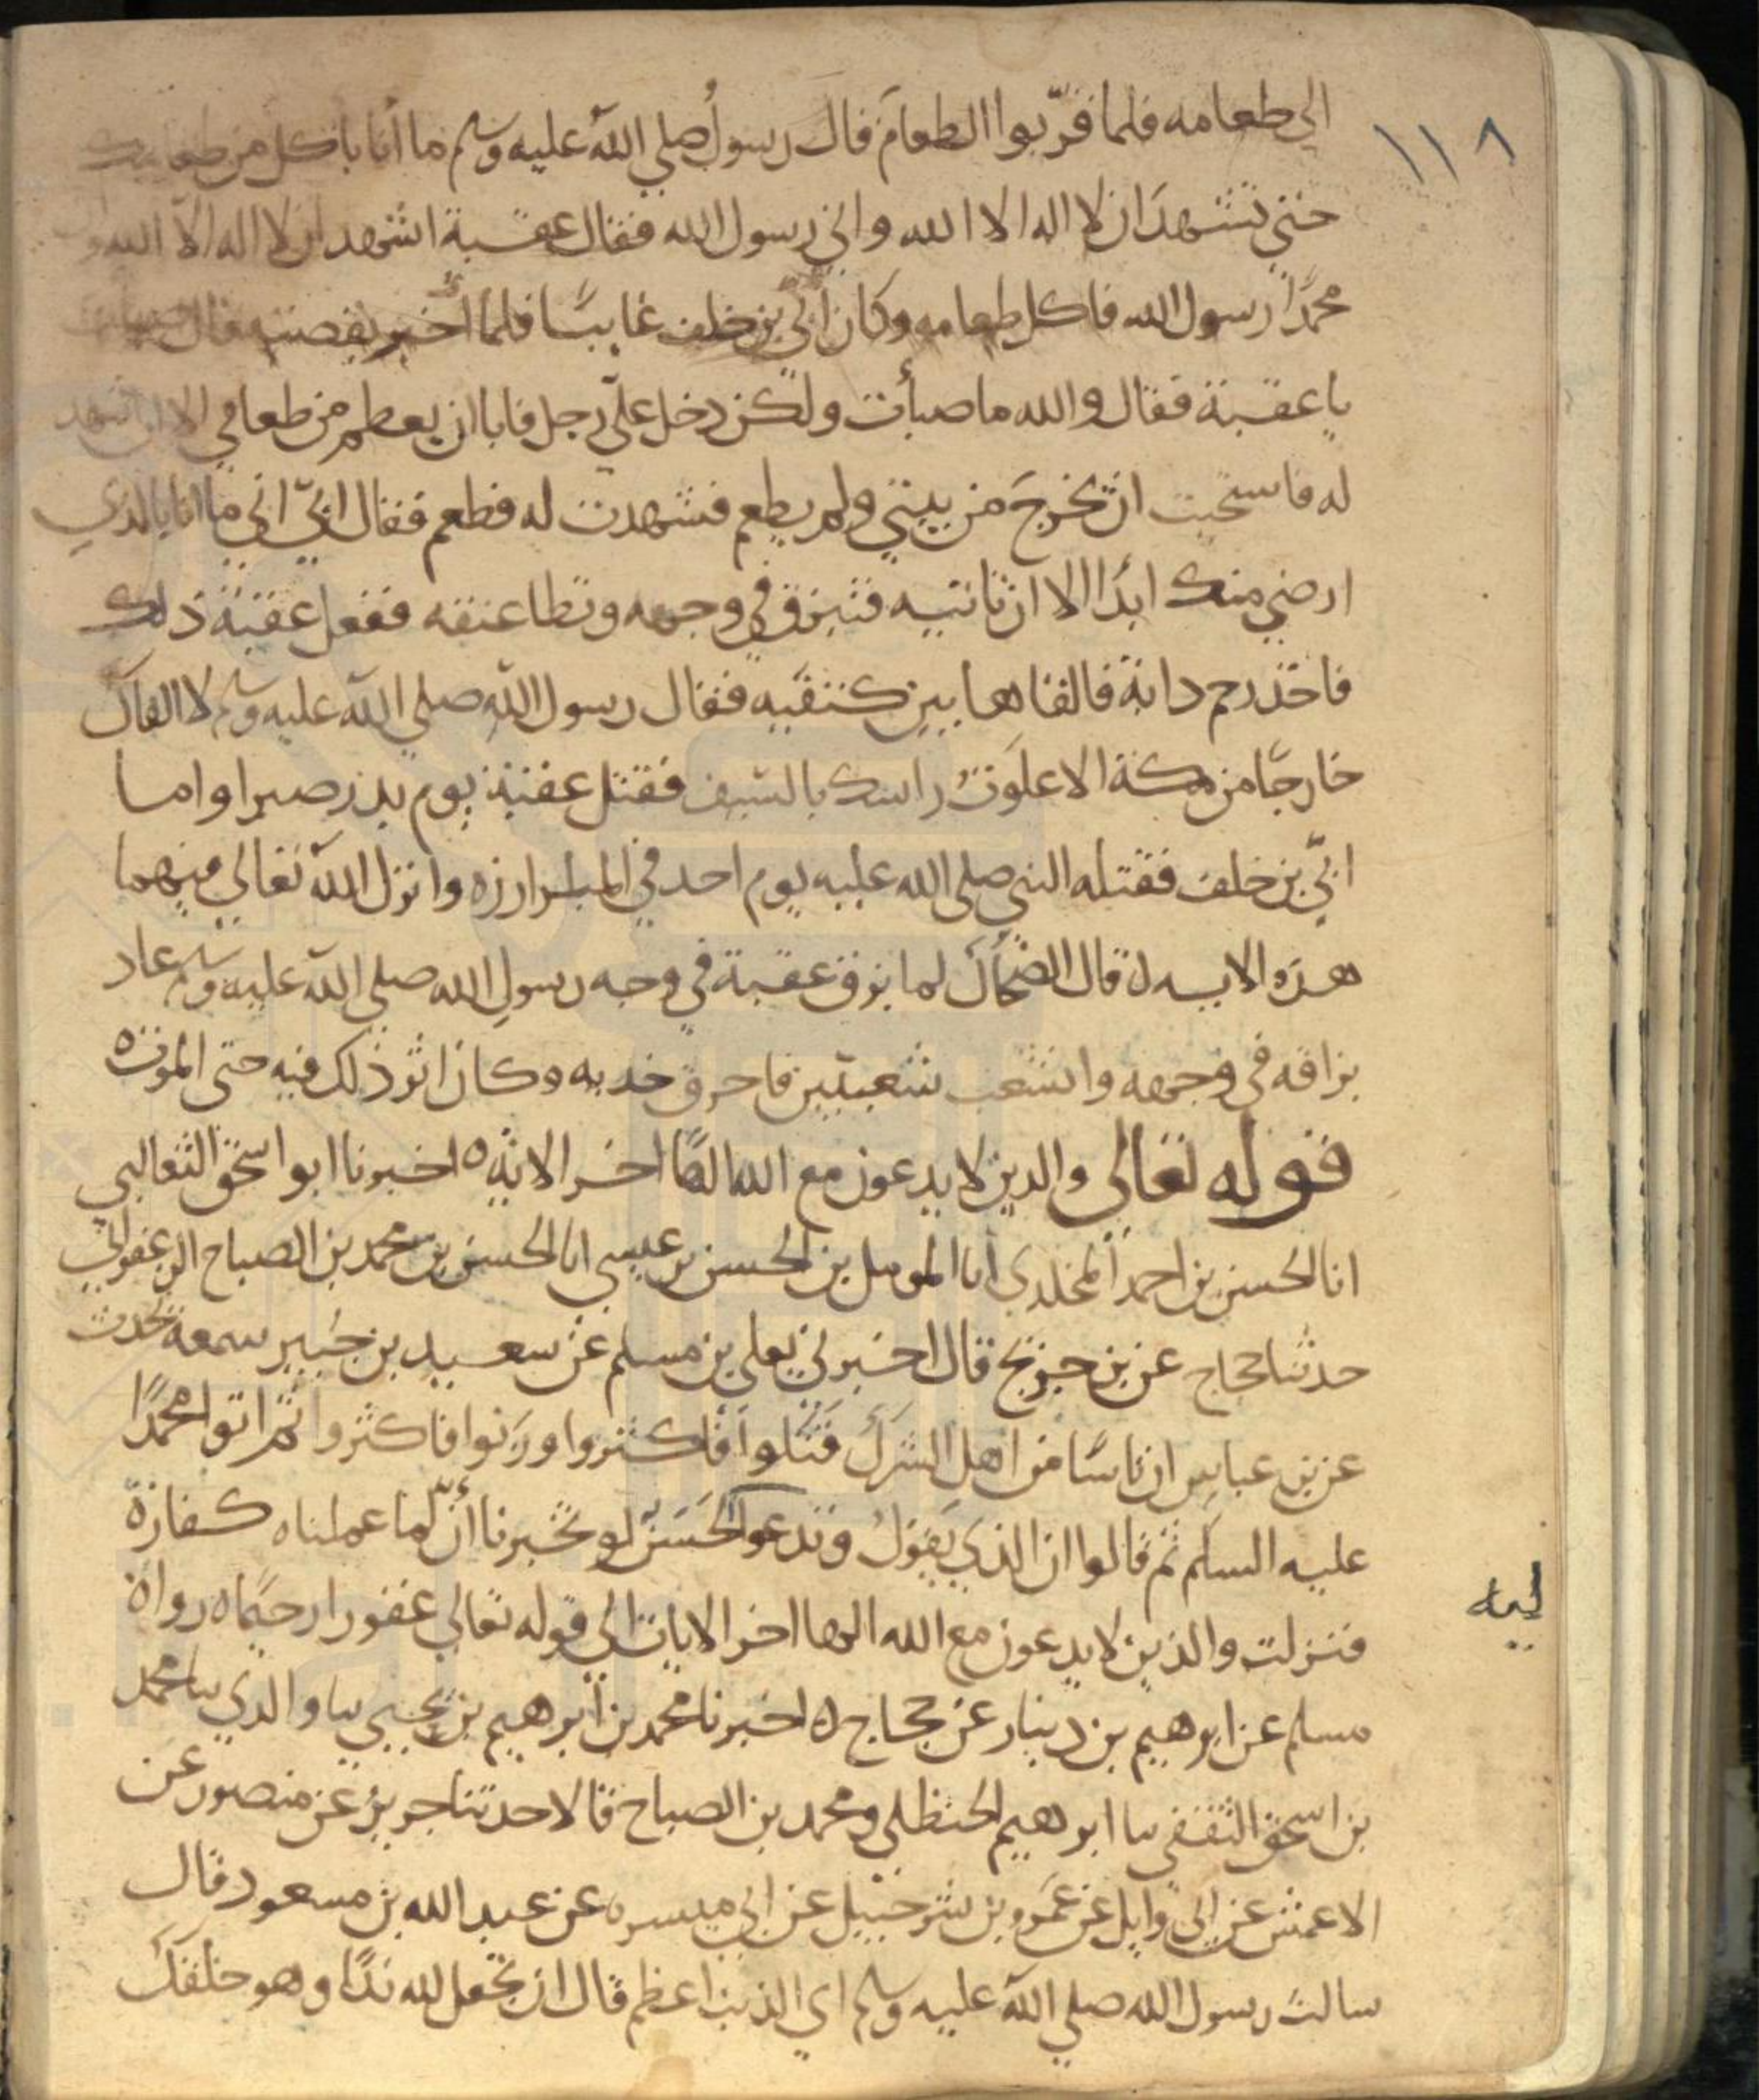 ١١٨
الى طعامه فلما قرّبوا الطعام قال رسول صلى الله عليه وسلم ما أنا باكل من طعامك
حتى تشهد ان لا اله الا الله واني رسول الله فقال عقبة اشهد ان لا اله الا الله وان
محمدًا رسول الله فاكل طعامه وكان أبيّ بن خلف غايبًا فلما أخبر بقصته قال صبأت
يا عقبة فقال والله ما صبأت ولكن دخل علىّ رجل فابا ان يطعم من طعامي الا ان اشهد
له فاستحيت ان يخرج من بيتي ولم يطعم فشهدت له فطعم فقال ابيّ اني ما انا بالذي
ارضي منك ابدًا الا ان تاتيه فتبزق في وجهه وتطا عنقه ففعل عقبة ذلك
فاخذ رحم دابة فالقاها بين كتفيه فقال رسول الله صلى الله عليه وسلم لا القاك
خارجًا من مكة الا علوت راسك بالسيف فقتل عقبة يوم بدر صبرا واما
ابيّ بن خلف فقتله النبي صلى الله عليه يوم احد في المبارزه وانزل الله تعالى فيهما
هذه الايه ه قال الضحاك لما بزق عقبة في وجه رسول الله صلى الله عليه وسلم عاد
بزاقه في وجهه وانشعب شعبتين فاحرق خديه وكان اثر ذلك فيه حتى الموت ه
قوله تعالى والذين لا يدعون مع الله الهًا اخر الاية ه اخبرنا ابو اسحق الثعالبي
انا الحسن بن احمد المخلدي انا المومل بن الحسن بن عيسى انا الحسن بن محمد بن الصباح الزعفراني
حدثنا حجاج عن بن جريج قال اخبرني يعلي بن مسلم عن سعيد بن جبير سمعه يحدث
عن بن عباس ان ناسًا من اهل الشرك قتلوا فاكثروا وزنوا فاكثروا ثم اتوا محمدًا
عليه السلم ثم قالوا ان الذي يقول وتدعوا لحسن لو تخبرنا أنّ لما عملناه كفارة
ليه
فنزلت والذين لا يدعون مع الله الها اخر الايات الي قوله تعالي غفورا رحيمًا ه رواه
مسلم عن ابرهيم بن دينار عن حجاج ه اخبرنا محمد بن ابرهيم بن يحيي ںںا والدي ںںا محمد
بن اسحق الثقفي ںںا ابرهيم الحنظلي ومحمد بن الصباح قالا حدثنا جرير عن منصور عن
الاعمش عن ابي وايل عن عمرو بن شرحبيل عن ابي ميسره عن عبد الله بن مسعود قال
سالت رسول الله صلى الله عليه وسلم اي الذنب اعظم قال ان تجعل لله ندًا وهو خلقك